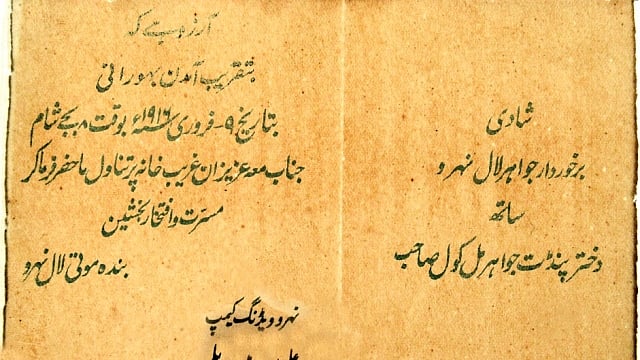 شادی
برخوردار جواہر لال نہرو
ساتھ
دختر پنڈت جواہر مل کول صاحب
آرزو ہے کہ
بتقریب آمدن بہو رانی
بتاریخ ۹-فروری سنہ ۱۹۱۶ء بوقت ۸ بجے شام
جناب معہ عزیزان غریب خانہ پر تناول ماحضر فرما کر
مسرت و افتخار بخشین
بندہ موتی لال نہرو
نہرو ویڈنگ کیمپ